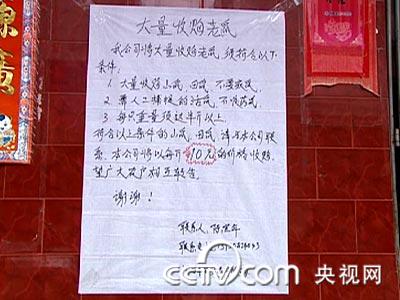 大量收购老鼠
我公司将大量收购老鼠,须符合以下
条件:
1 大量收药山鼠、田鼠,不要家鼠。
2 需人工捕捉的活鼠,不收药鼠
3 每只重量须达半斤以上
符合以上条件的山鼠、田鼠,请与本公司联
系,本公司将以每斤10元的价格收购
望广大农户相互转告。
谢谢!
联系人
联系电
cctv.com 央视网